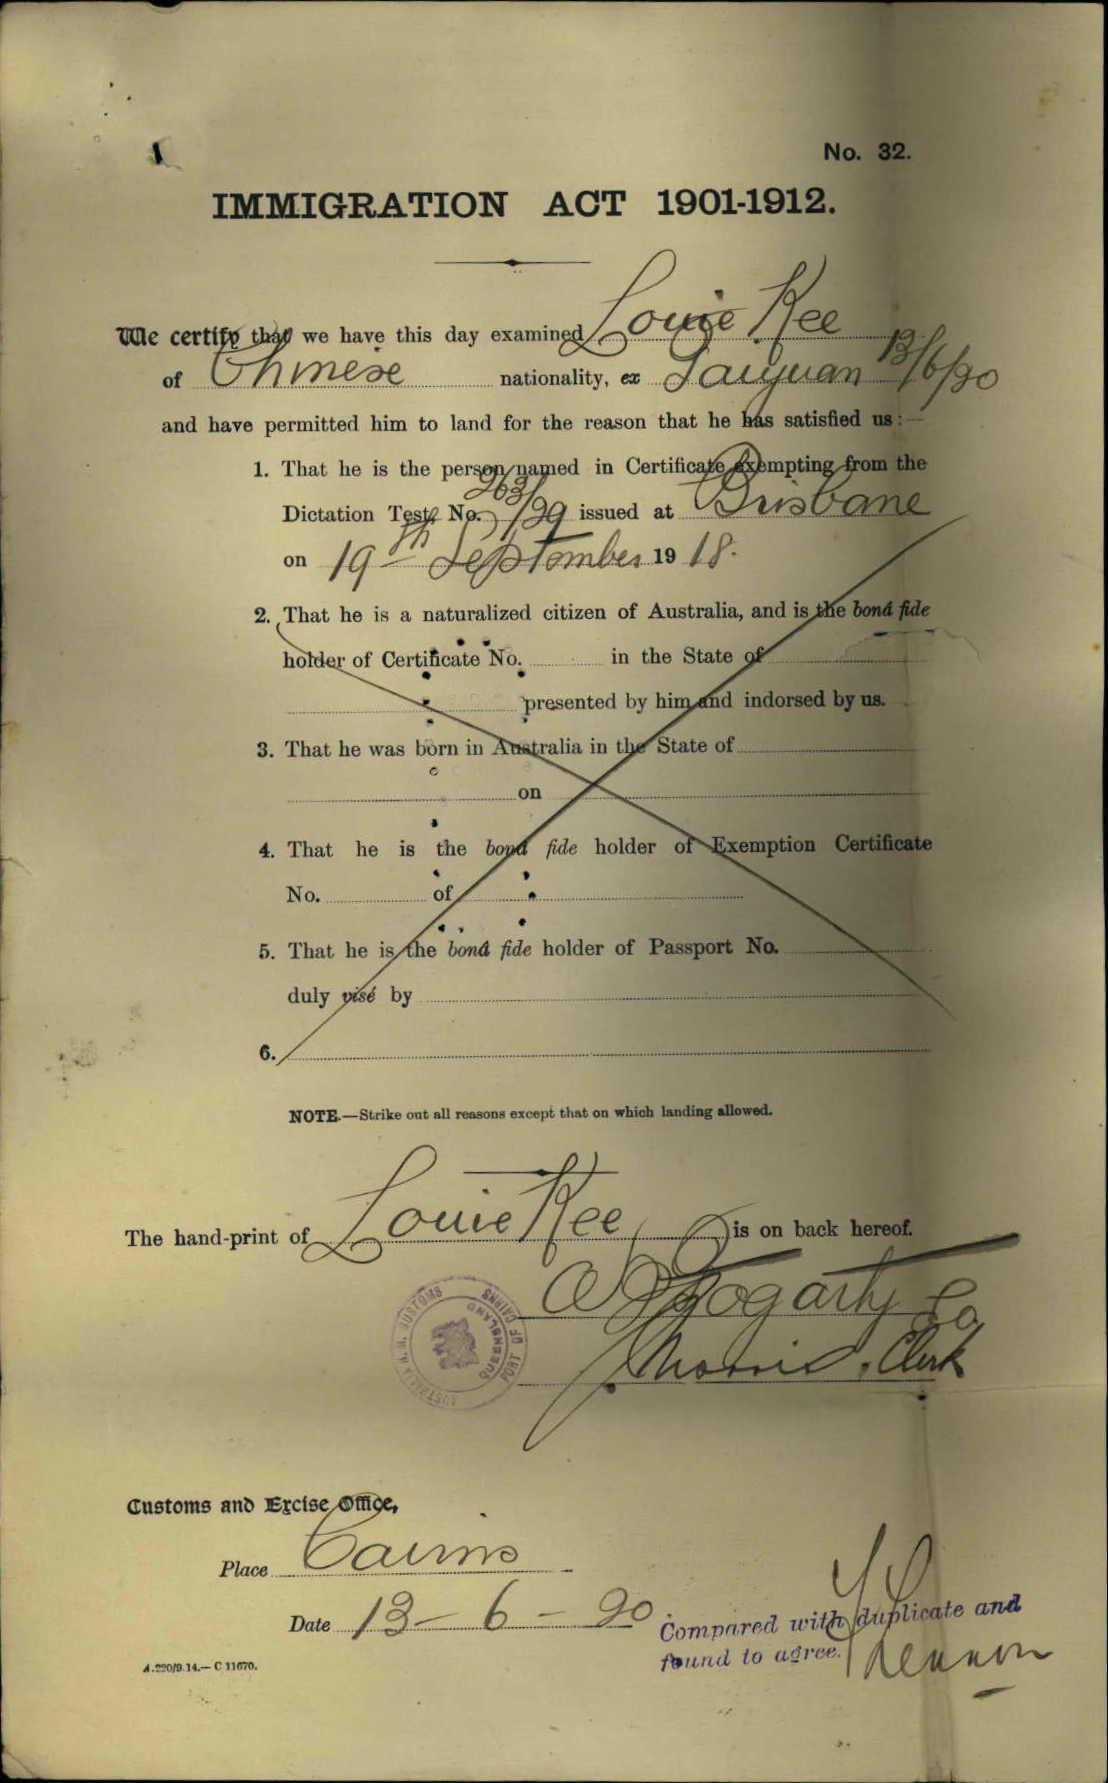 No. 32.
IMMIGRATION ACT 1901-1912.
We certify that we have this day examined Louie Kee
of Chinese nationality, ex Taiyuan 13/6/20
and have permitted him to land for the reason that he has satisfied us:—
1. That he is the person named in Certificate exempting from the
Dictation Test, No. 263/29 issued at Brisbane
on 19th September 1918.
2. That he is a naturalized citizen of Australia, and is the bonâ fide
holder of Certificate No. in the State of
presented by him and indorsed by us.
3. That he was born in Australia in the State of
on
4. That he is the bonâ fide holder of Exemption Certificate
No. of
5. That he is the bonâ fide holder of Passport No.
duly visé by
6.
NOTE.—Strike out all reasons except that on which landing allowed.
The hand-print of Louie Kee is on back hereof.
Fogarty
J. Morris, Clerk
AUSTRALIA H.M. CUSTOMS
PORT OF CAIRNS
QUEENSLAND
Customs and Excise Office,
Place Cairns
Date 13-6-20.
Compared with duplicate and
found to agree.
A.220/9.14.—C 11670.